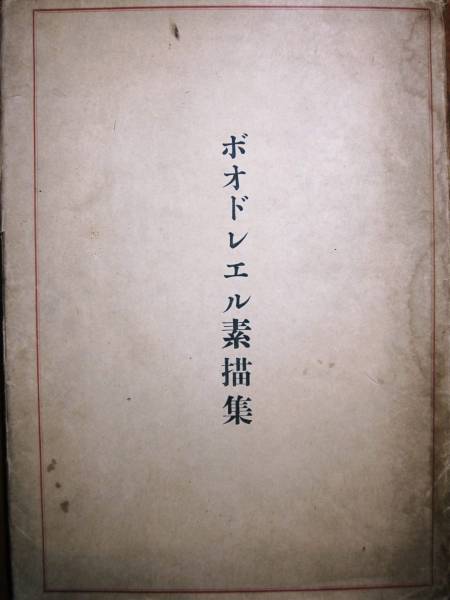 ボオドレエル素描集